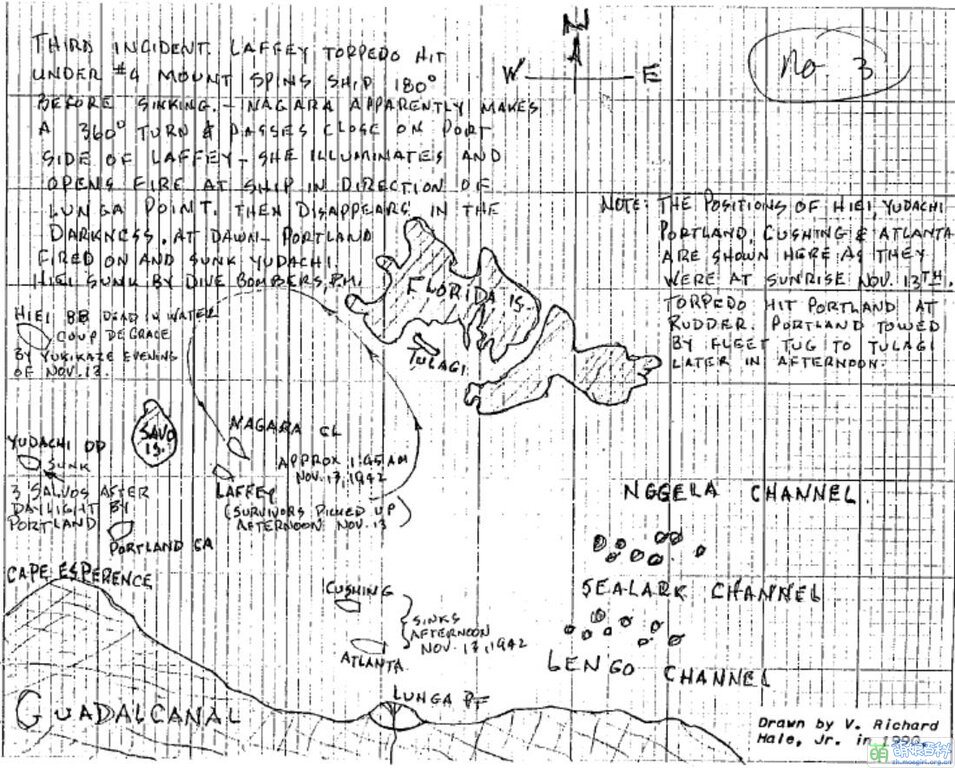 THIRD INCIDENT. LAFFEY TORPEDO HIT
UNDER #4 MOUNT SPINS SHIP 180°
BEFORE SINKING. - NAGARA APPARENTLY MAKES
A 360° TURN & PASSES CLOSE ON PORT
SIDE OF LAFFEY - SHE ILLUMINATES AND
OPENS FIRE AT SHIP IN DIRECTION OF
LUNGA POINT. THEN DISAPPEARS IN THE
DARKNESS. AT DAWN - PORTLAND
FIRED ON AND SUNK YUDACHI.
HIEI SUNK BY DIVE BOMBERS, P.M.
N
W E
No. 3
NOTE: THE POSITIONS OF HIEI, YUDACHI
PORTLAND, CUSHING & ATLANTA
ARE SHOWN HERE AS THEY
WERE AT SUNRISE NOV. 13TH.
TORPEDO HIT PORTLAND AT
RUDDER. PORTLAND TOWED
BY FLEET TUG TO TULAGI
LATER IN AFTERNOON.
FLORIDA IS.
TULAGI
HIEI BB DEAD IN WATER
COUP DE GRACE
BY YUKIKAZE EVENING
OF NOV. 13.
SAVO
IS.
NAGARA CL
APPROX 1:45 AM
NOV. 13, 1942
LAFFEY
(SURVIVORS PICKED UP
AFTERNOON NOV. 13)
YUDACHI DD
SUNK
3 SALVOS AFTER
DAYLIGHT BY
PORTLAND
PORTLAND CA
CAPE ESPERENCE
NGGELA CHANNEL.
SEALARK CHANNEL
LENGO CHANNEL
CUSHING
SINKS
AFTERNOON
NOV. 13, 1942
ATLANTA
LUNGA PT
GUADALCANAL
Drawn by V. Richard
Hale, Jr. in 1990.
萌娘百科
zh.moegirl.org.cn